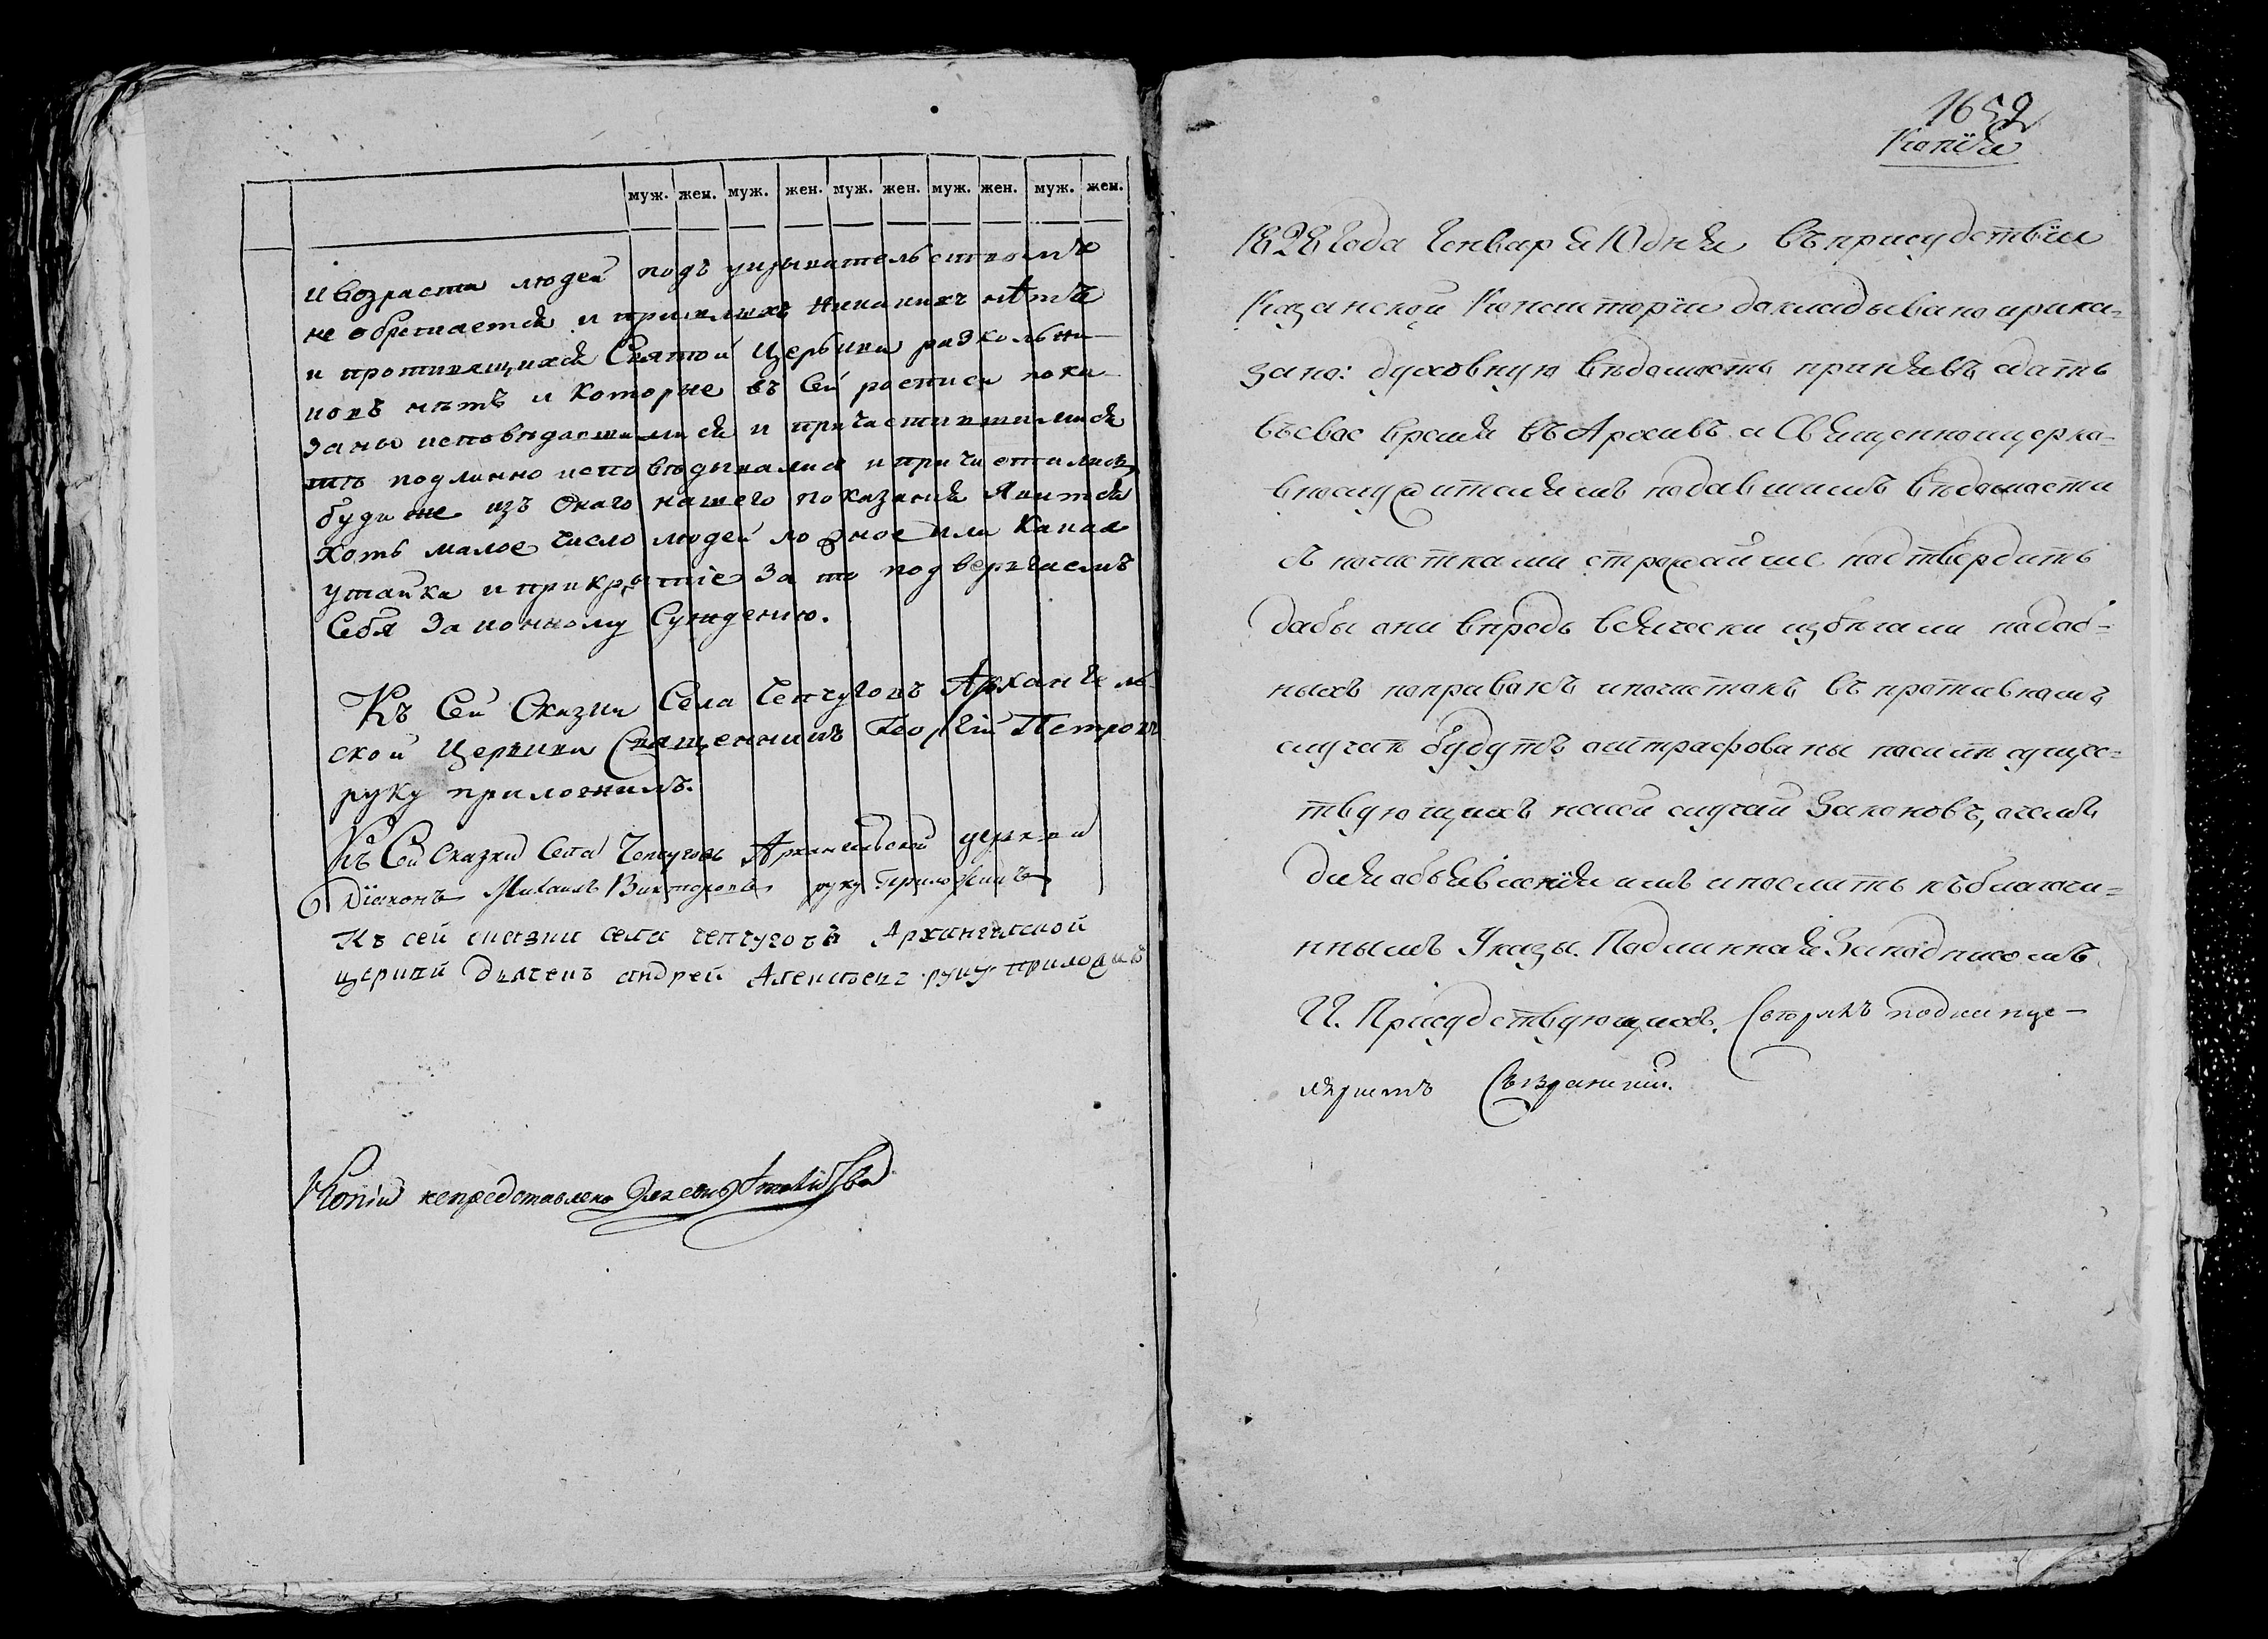 муж. жен. муж. жен. муж. жен. муж. жен. муж. жен.
и возраста людей подъ указывательствомъ
не обретается и пришлыхъ никакихъ нѣтъ
и противящихся Святой Церькви разкольни
ковъ нѣтъ и которые въ сей росписи пока
заны исповѣдаешимися и причастившимися
тѣ подлинно исповѣдывались и причистились
буди же изъ онаго нашего показания явится
хоть малое число людей ложное или какая
утайка и прикрытіе за то подвергаемъ
Себя законному Суждению.
Къ Сей Сказки Села Чепчуговъ Архангель
ской Церкви Священникъ Георгій Петровъ
руку приложилъ.
Къ Сей Сказки Села Чепчуговъ Архангельской церкви
Діаконъ Михаилъ Викторовъ руку Приложилъ
Къ сей сказки села чепчуговъ Архангилской
церкви дьячекъ андрей Алексѣевъ руку приложилъ
Копіи непредставлено
1652
Копія
1828 года Генваря 10 дня въ присудствіи
Казанской Консисторіи докладывано прика=
зано: духовную вѣдомость принявъ сдать
въ свое время въ Архивъ а Священноцерко=
внослужителямъ подавшимъ вѣдомости
съ почистками строжайше подтвердить
дабы они впредь всячески избѣгали подоб=
ныхъ поправокъ и почистокъ въ противномъ
случаѣ будутъ оштрафованы по силѣ сущес=
твующихъ на сей случай Законовъ, о чемъ
для объявленія имъ и послать къ благочи=
ннымъ Указы. Подлинная за подписомъ
ГГ. Присудствующихъ. Сторгалъ подкнце-
ляристъ